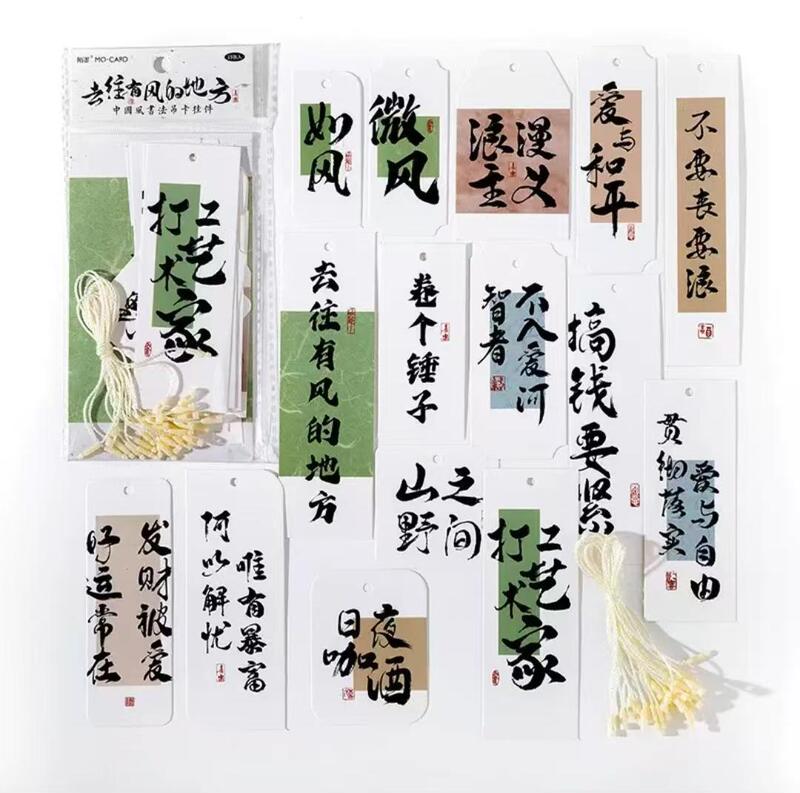 MO-CARD
去往有风的地方
中國風書法吊卡挂件
打工艺术家
如风
微风
浪漫
主义
爱与
和平
不要丧要浪
去往有风的地方
卷个锤子
智者
不入爱河
搞钱要紧
贯彻落实
爱与自由
发财被爱
好运常在
何以解忧
唯有暴富
山野
之间
日咖
夜酒
打工艺术家